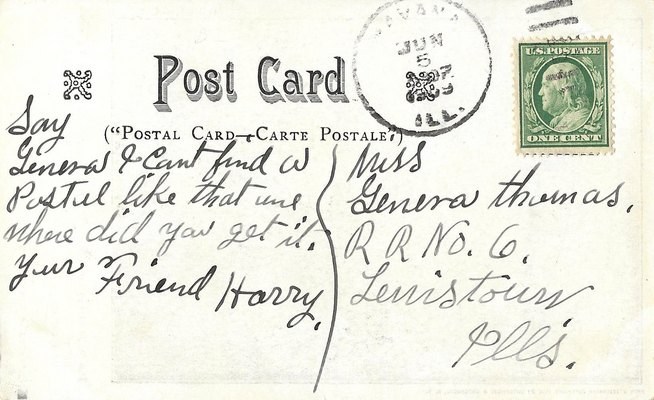 HAVANA
JUN
5
ILL.
U.S. POSTAGE
ONE CENT
Post Card
("POSTAL CARD—CARTE POSTALE")
Say
Geneva I cant find a
Postel like that une
where did you get it.
Your Friend Harry.
Miss
Geneva Thomas.
R R No. 6.
Lewistown
Ills.